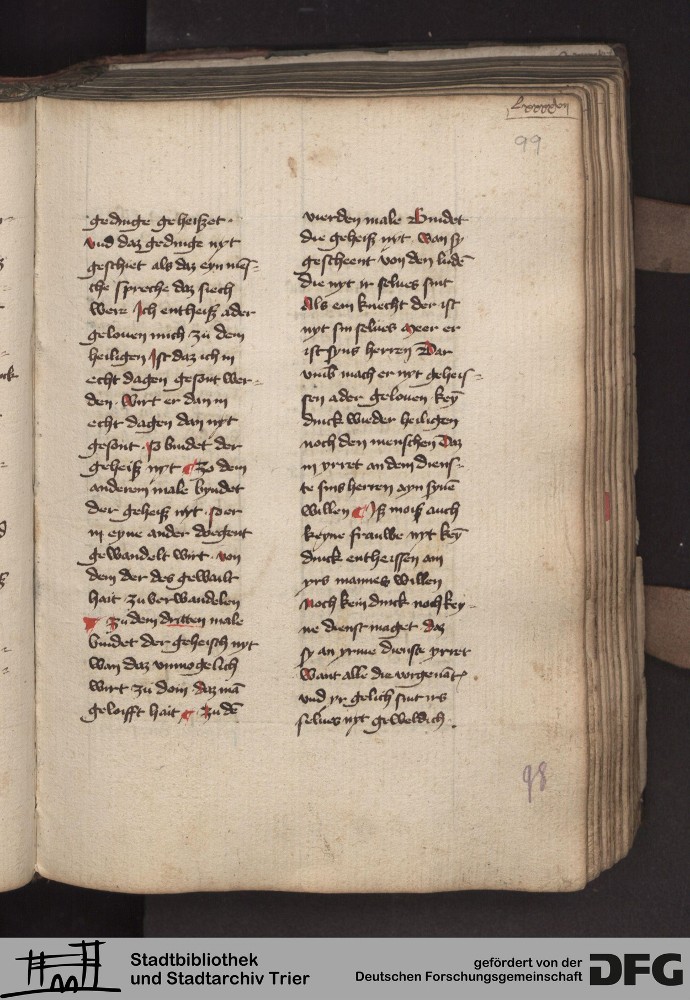 99
gedinge geheißet·
vnd daz gedinge nyt
geschiet als daz eyn mēs-
che spreche daz siech
were Ich entheiß ader
gelouen mich zu dem
heiligen Ist daz ich in
echt dagen gesont wer-
den· Wirt er dan in
echt dagen dan nyt
gesont· so bindet der
geheiß nyt ¶ Zo dem
anderem male byndet
der geheiß nyt· so er
in eyne ander doegent
gewandelt wirt· von
dem der des gewailt
hait zu verwandelen
¶ Zu dem dritten male
bindet der geheisch nyt
wan daz vnmogelich
wirt zu doin daz mā
geloifft hait ¶ Zu dē
vierden male Bindet
die geheiß nyt wan sy
gescheent von den ludē
die nyt ir selues sint
Als ein knecht der ist
nyt sin selues Meer er
ist syns herren Dar
vmb mach er nyt geheis-
sen ader gelouen keȳ
dinck wieder heiligen
noch den menschen Daz
in yrret an dem diens-
te sins herren ayn synē
willen ¶ Iß moiß auch
keyne frauwe nyt keȳ
dinck entheissen ain
yrs mannes willen
Noch kein dinck noch key-
ne dienst maget daz
sy an yrme dienste yrret
Want alle die vorgenāt
vnd yr gelich sint irs
selues nyt geweldich·
98
Stadtbibliothek
und Stadtarchiv Trier
gefördert von der
Deutschen Forschungsgemeinschaft
DFG